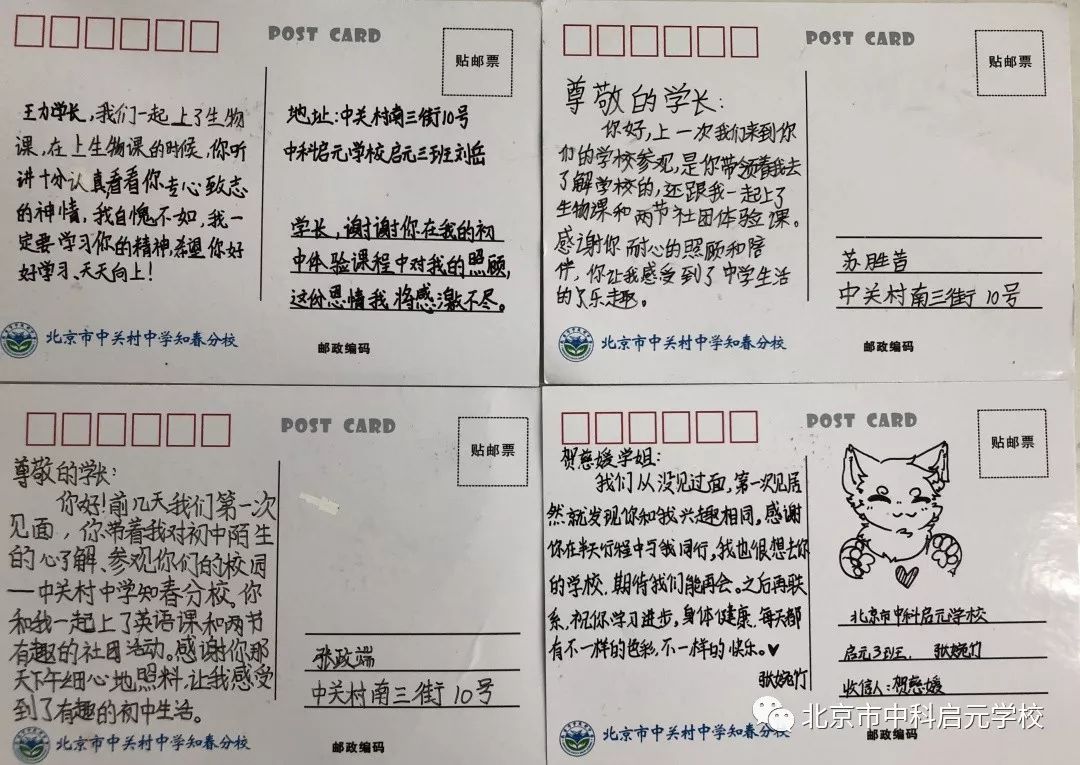 POST CARD
贴邮票
王力学长，我们一起上了生物
课，在上生物课的时候，你听
讲十分认真看着你专心致志
的神情，我自愧不如，我一
定要学习你的精神，希望你好
好学习、天天向上！
地址：中关村南三街10号
中科启元学校启元三班刘岳
学长，谢谢你在我的初
中体验课程中对我的照顾，
这份恩情我将感激不尽。
北京市中关村中学知春分校
邮政编码
POST CARD
贴邮票
尊敬的学长：
你好，上一次我们来到你
们的学校参观，是你带领着我去
了解学校的，还跟我一起上了
生物课和两节社团体验课。
感谢你耐心的照顾和陪
伴，你让我感受到了中学生活
的乐趣。
苏胜昔
中关村南三街10号
北京市中关村中学知春分校
邮政编码
POST CARD
贴邮票
尊敬的学长：
你好！前几天我们第一次
见面，你带着我对初中陌生
的心了解、参观你们的校园
—中关村中学知春分校。你
和我一起上了英语课和两节
有趣的社团活动。感谢你那
天下午细心地照料，让我感受
到了有趣的初中生活。
张政端
中关村南三街10号
北京市中关村中学知春分校
邮政编码
POST CARD
贴邮票
贺慈媛学姐：
我们从没见过面，第一次见居
然就发现你和我兴趣相同，感谢
你在半天行程中与我同行，我也很想去你
的学校，期待我们能再会。之后再联
系，祝你学习进步，身体健康，每天都
有不一样的色彩，不一样的快乐。♥
张婉竹
北京市中科启元学校
启元3班，张婉竹
收信人：贺慈媛
北京市中关村中学知春分校
邮政编码
北京市中科启元学校